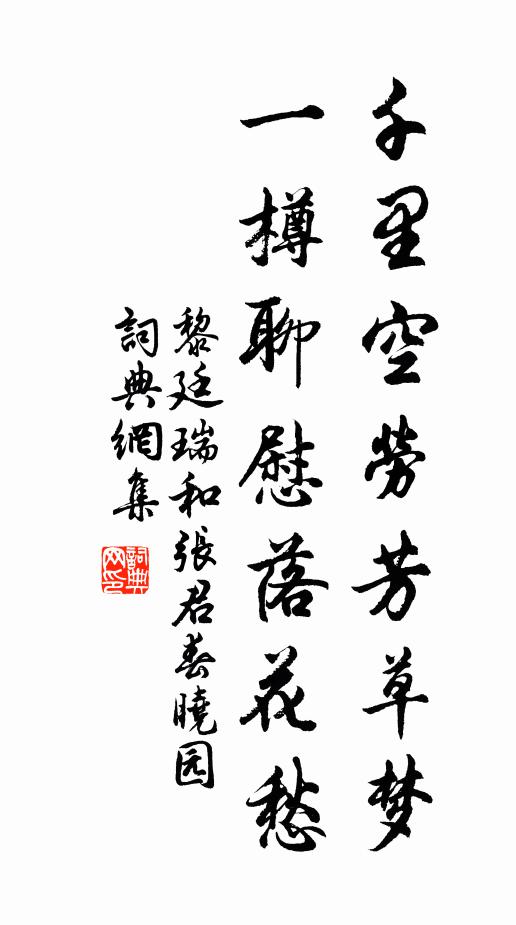 千里空劳芳草梦
一樽聊慰落花愁
黎廷瑞和張君春曉园
詞典網集
詞典网印